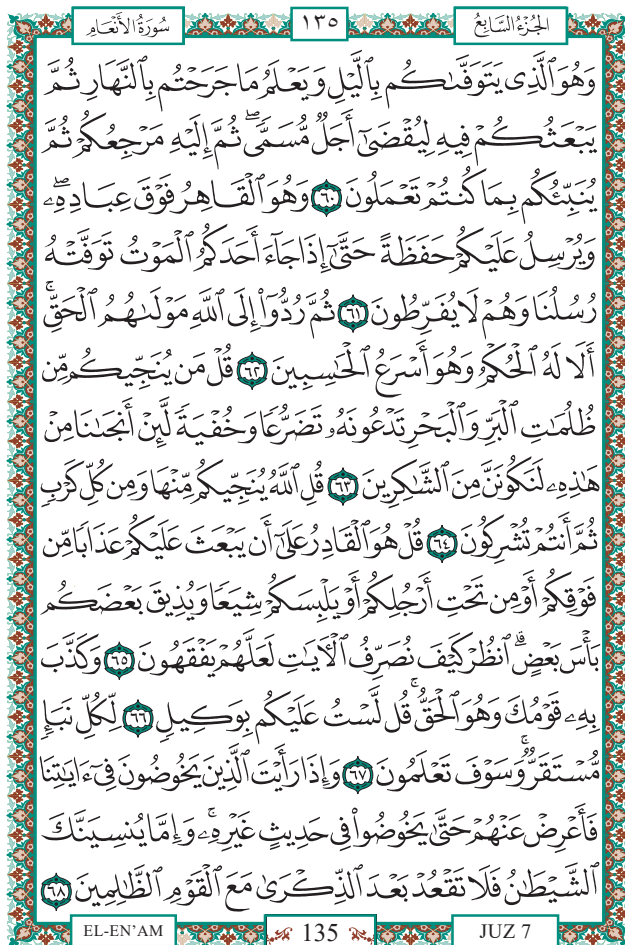 سُورَةُ الْأَنْعَامِ ١٣٥ الْجُزْءُ السَّابِعُ
وَهُوَ ٱلَّذِى يَتَوَفَّىٰكُم بِٱلَّيْلِ وَيَعْلَمُ مَا جَرَحْتُم بِٱلنَّهَارِ ثُمَّ
يَبْعَثُكُمْ فِيهِ لِيُقْضَىٰٓ أَجَلٌ مُّسَمًّى ۖ ثُمَّ إِلَيْهِ مَرْجِعُكُمْ ثُمَّ
يُنَبِّئُكُم بِمَا كُنتُمْ تَعْمَلُونَ ٦٠ وَهُوَ ٱلْقَاهِرُ فَوْقَ عِبَادِهِۦ ۖ
وَيُرْسِلُ عَلَيْكُمْ حَفَظَةً حَتَّىٰٓ إِذَا جَآءَ أَحَدَكُمُ ٱلْمَوْتُ تَوَفَّتْهُ
رُسُلُنَا وَهُمْ لَا يُفَرِّطُونَ ٦١ ثُمَّ رُدُّوٓا۟ إِلَى ٱللَّهِ مَوْلَىٰهُمُ ٱلْحَقِّ ۚ
أَلَا لَهُ ٱلْحُكْمُ وَهُوَ أَسْرَعُ ٱلْحَٰسِبِينَ ٦٢ قُلْ مَن يُنَجِّيكُم مِّن
ظُلُمَٰتِ ٱلْبَرِّ وَٱلْبَحْرِ تَدْعُونَهُۥ تَضَرُّعًا وَخُفْيَةً لَّئِنْ أَنجَىٰنَا مِنْ
هَٰذِهِۦ لَنَكُونَنَّ مِنَ ٱلشَّٰكِرِينَ ٦٣ قُلِ ٱللَّهُ يُنَجِّيكُم مِّنْهَا وَمِن كُلِّ كَرْبٍ
ثُمَّ أَنتُمْ تُشْرِكُونَ ٦٤ قُلْ هُوَ ٱلْقَادِرُ عَلَىٰٓ أَن يَبْعَثَ عَلَيْكُمْ عَذَابًا مِّن
فَوْقِكُمْ أَوْ مِن تَحْتِ أَرْجُلِكُمْ أَوْ يَلْبِسَكُمْ شِيَعًا وَيُذِيقَ بَعْضَكُم
بَأْسَ بَعْضٍ ۗ ٱنظُرْ كَيْفَ نُصَرِّفُ ٱلْـَٔايَٰتِ لَعَلَّهُمْ يَفْقَهُونَ ٦٥ وَكَذَّبَ
بِهِۦ قَوْمُكَ وَهُوَ ٱلْحَقُّ ۚ قُل لَّسْتُ عَلَيْكُم بِوَكِيلٍ ٦٦ لِّكُلِّ نَبَإٍ
مُّسْتَقَرٌّ ۚ وَسَوْفَ تَعْلَمُونَ ٦٧ وَإِذَا رَأَيْتَ ٱلَّذِينَ يَخُوضُونَ فِىٓ ءَايَٰتِنَا
فَأَعْرِضْ عَنْهُمْ حَتَّىٰ يَخُوضُوا۟ فِى حَدِيثٍ غَيْرِهِۦ ۚ وَإِمَّا يُنسِيَنَّكَ
ٱلشَّيْطَٰنُ فَلَا تَقْعُدْ بَعْدَ ٱلذِّكْرَىٰ مَعَ ٱلْقَوْمِ ٱلظَّٰلِمِينَ ٦٨
EL-EN'AM 135 JUZ 7